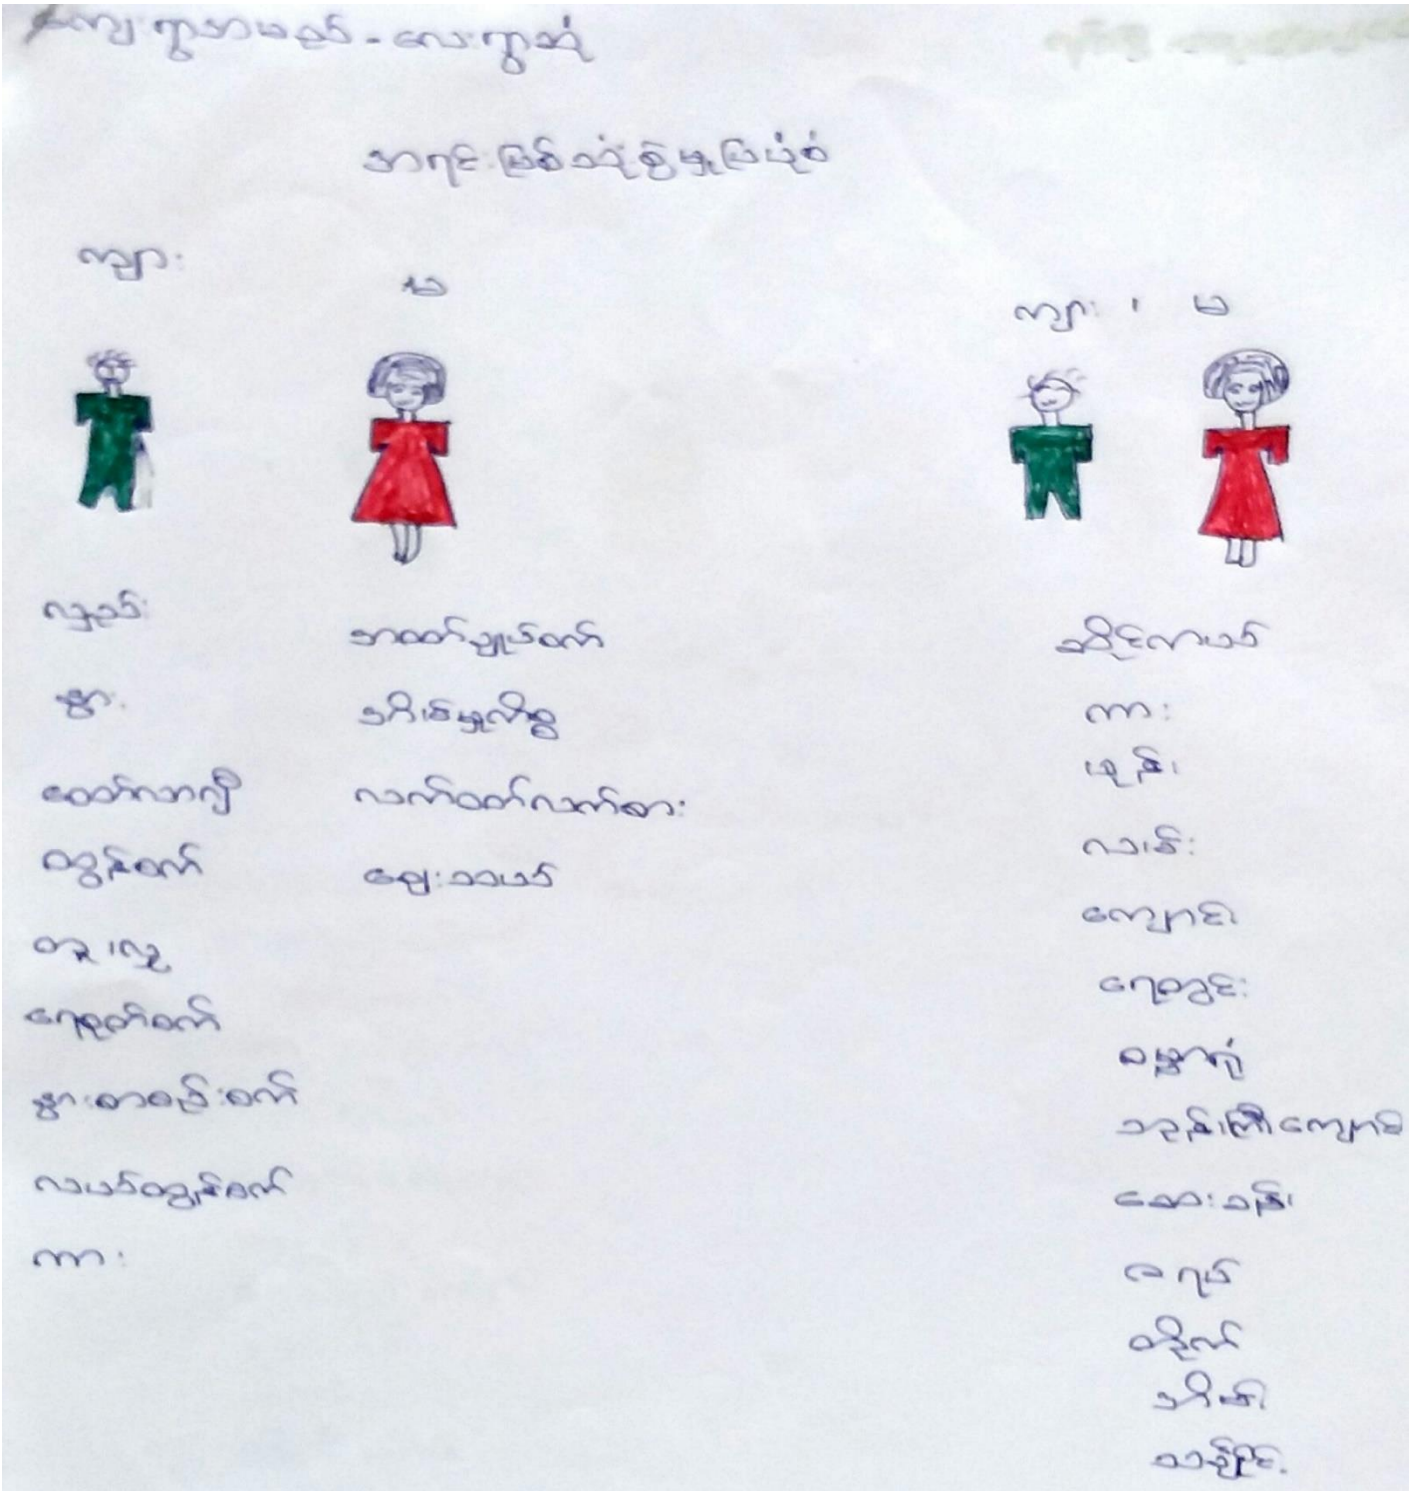 ကျေးရွာအမည် - လေးရွာဆုံ
အရင်းမြစ်သုံးစွဲမှုပြပုံစံ
ကျား
မ
ကျား ၊ မ
လှည်း
နွား
ထော်လာဂျီ
ထွန်စက်
ရေစုတ်စက်
နွားစာစဉ်းစက်
လယ်ထွန်စက်
ကား
အထည်ချုပ်စက်
အိမ်မှုကိစ္စ
လက်ဝတ်လက်စား
ဈေးသည်
ဆိုင်ကယ်
ကား
ဖုန်း
လမ်း
ကျောင်း
ရေတွင်း
ဓမ္မာရုံ
ဘုန်းကြီးကျောင်း
ဆေးခန်း
ဇရပ်
တိုက်
အိမ်
သချိုင်း